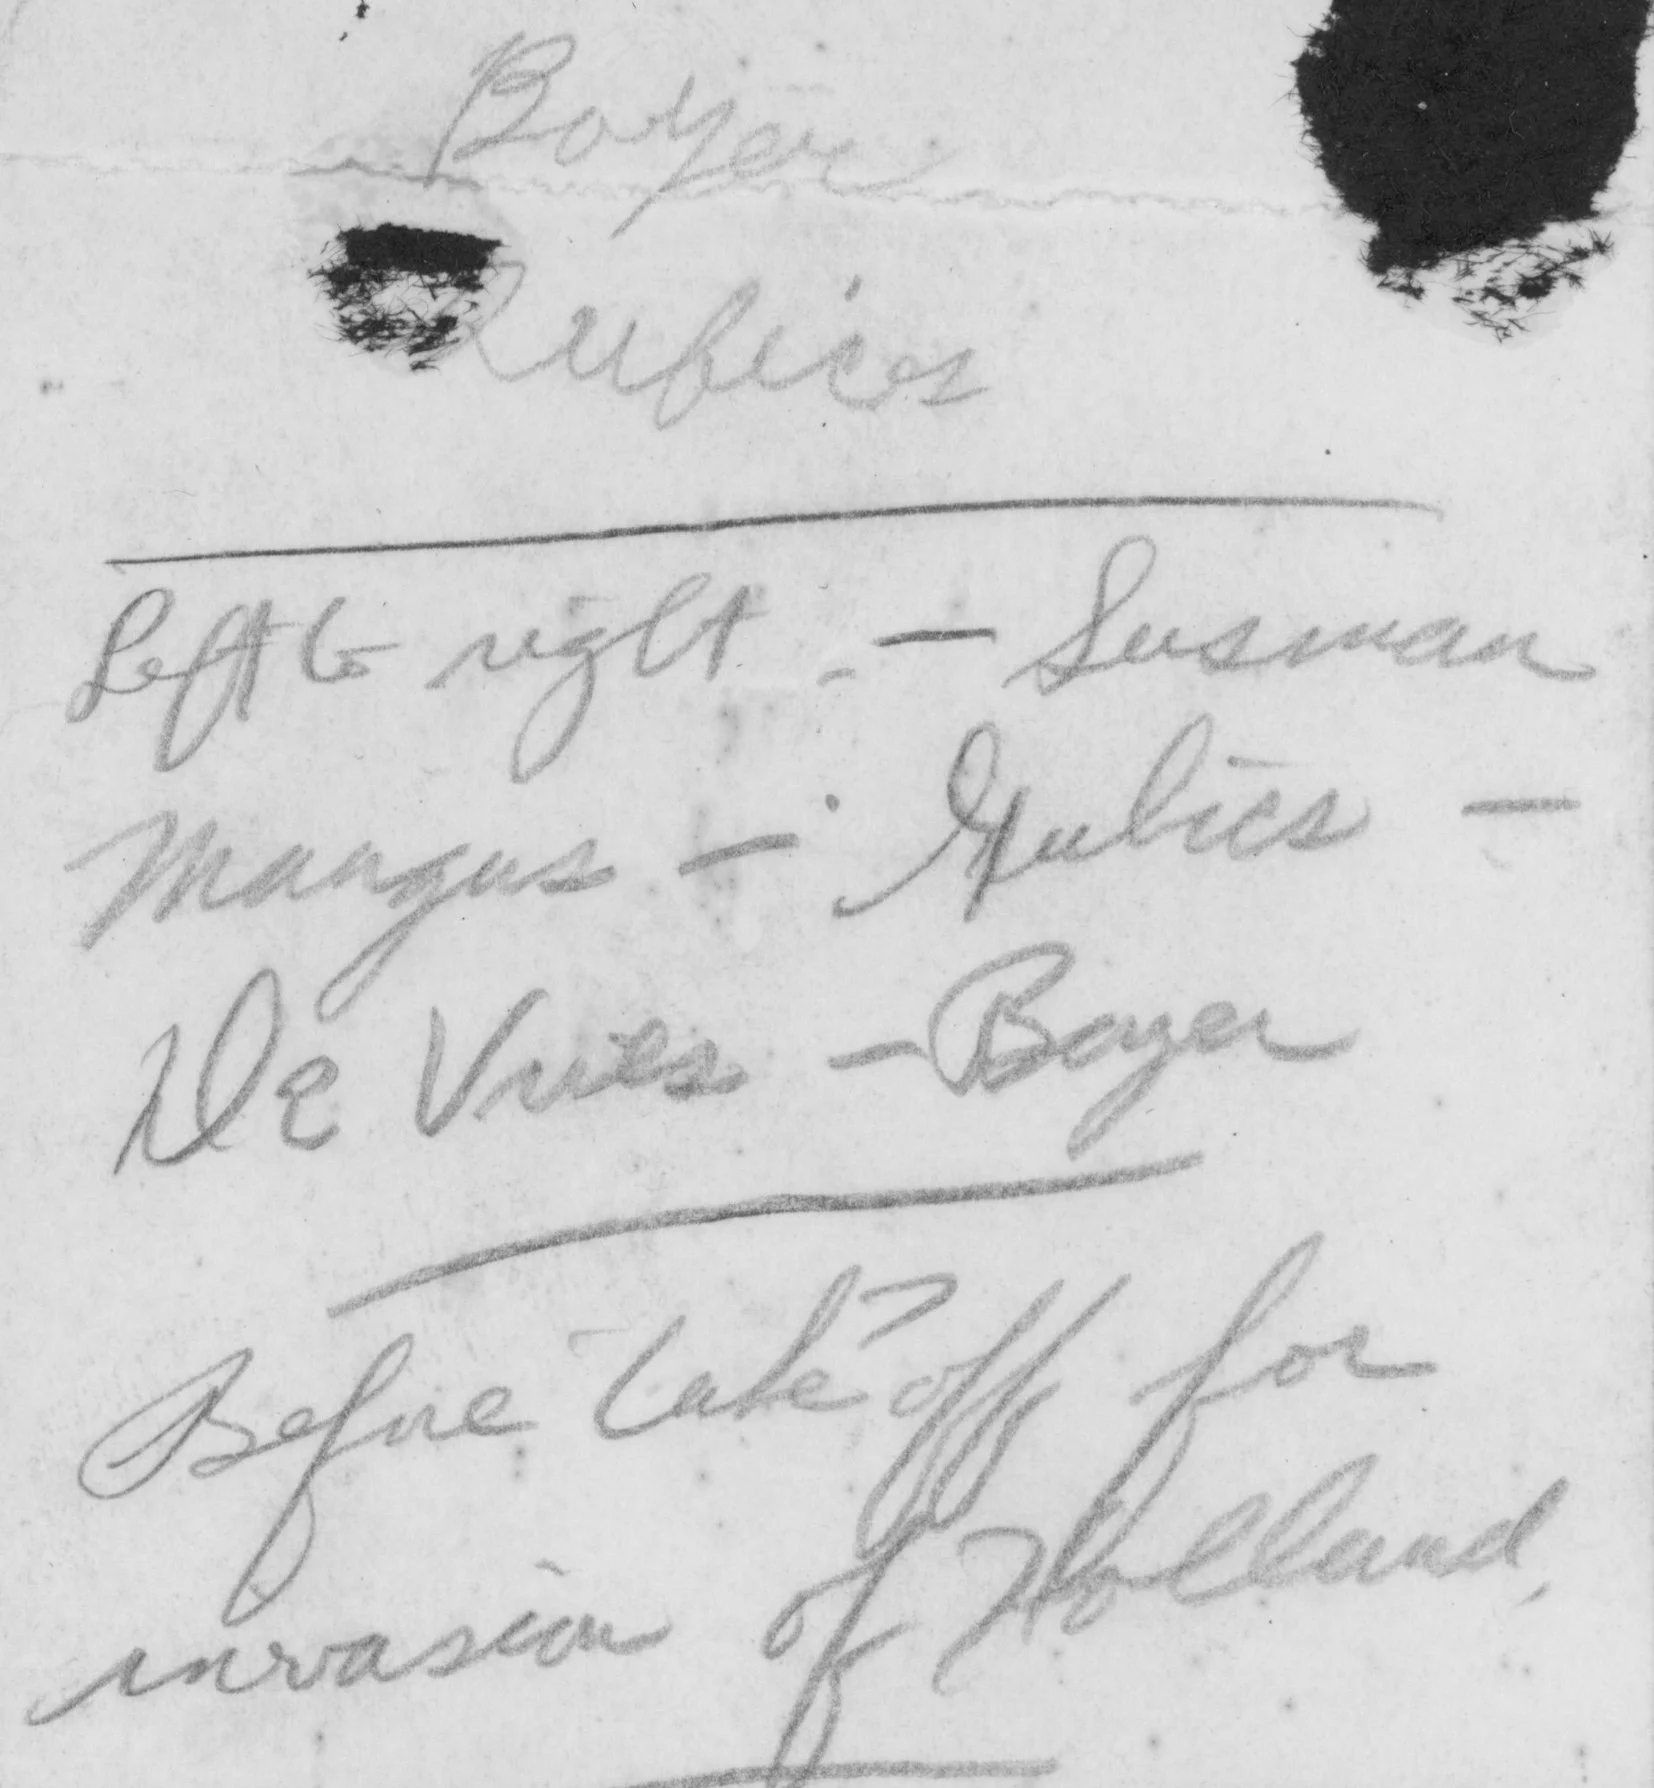 Boyer
Rubics
Left to right. — Susman
Mangus — Rubics —
De Vries — Boyer
Before take off for
invasion of Holland.